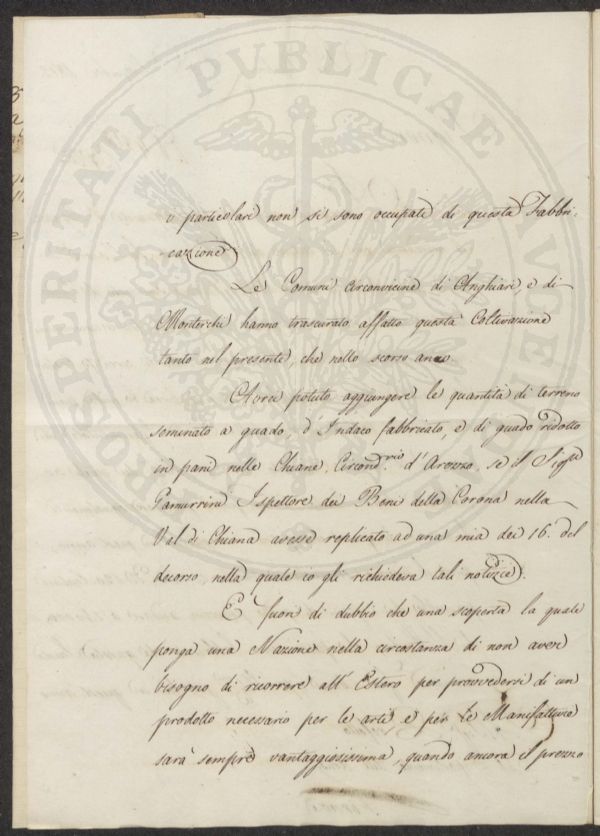 PROSPERITATI PUBLICAE AUGE
o particolare non si sono occupate di questa Fabbri-
cazione
Le Comuni circonvicine di Anghiari, e di
Monterchi hanno trascurato affatto questa Coltivazione
tanto nel presente, che nello scorso anno.
Avrei potuto aggiungere le quantità di terreno
seminato a guado, d'Indaco fabbricato, e di guado ridotto
in pani nelle Chiane, Circond.rio d'Arezzo, se il Sig.re
Gamurrini Ispettore dei Beni della Corona nella
Val di Chiana avesse replicato ad una mia dei 16. del
decorso, nella quale io gli richiedeva tali notizie.
E' fuori di dubbio che una scoperta la quale
ponga una Nazione nella circostanza di non aver
bisogno di ricorrere all' Estero per provvedersi di un
prodotto necessario per le arti e per le Manifatture
sarà sempre vantaggiosissima, quando ancora il prezzo